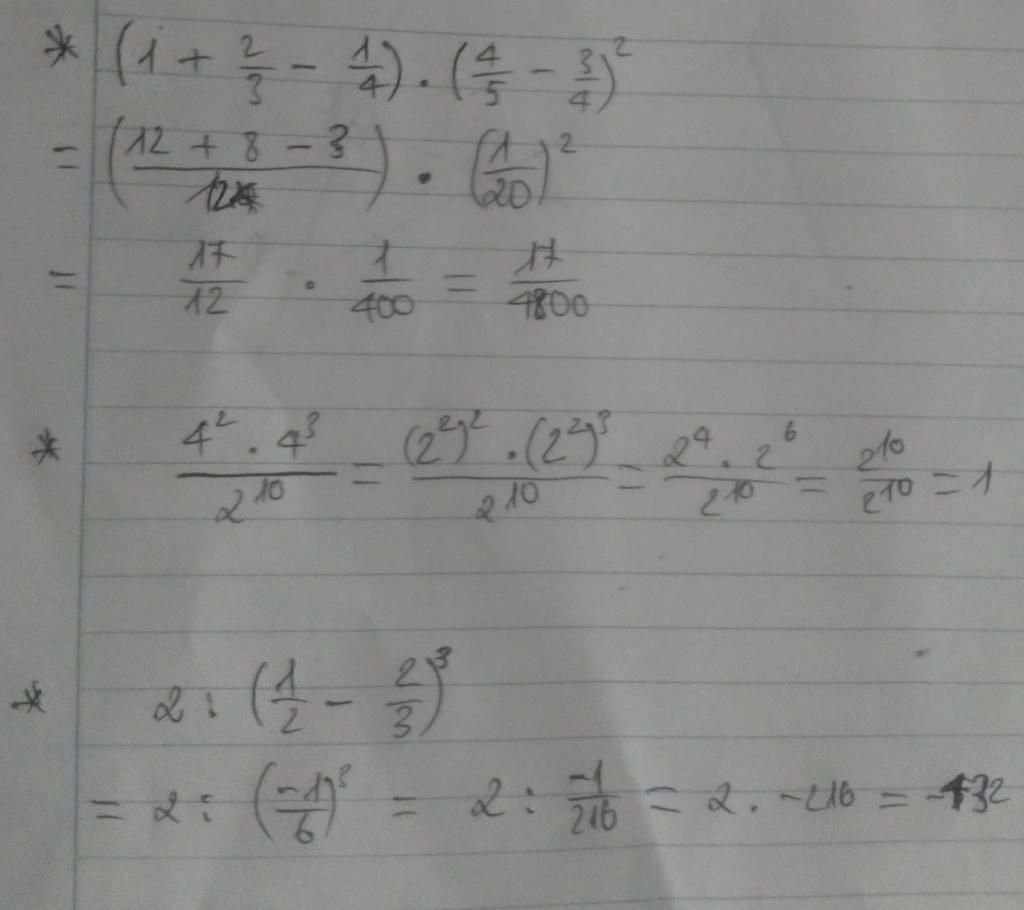 * (1 + 2/3 - 1/4) . (4/5 - 3/4)²
= ((12 + 8 - 3)/12) . (1/20)²
= 17/12 . 1/400 = 17/4800
* (4² . 4³)/2¹⁰ = ((2²)² . (2²)³)/2¹⁰ = (2⁴ . 2⁶)/2¹⁰ = 2¹⁰/2¹⁰ = 1
* 2 : (1/2 - 2/3)³
= 2 : (-1/6)³ = 2 : -1/216 = 2 . -216 = -432